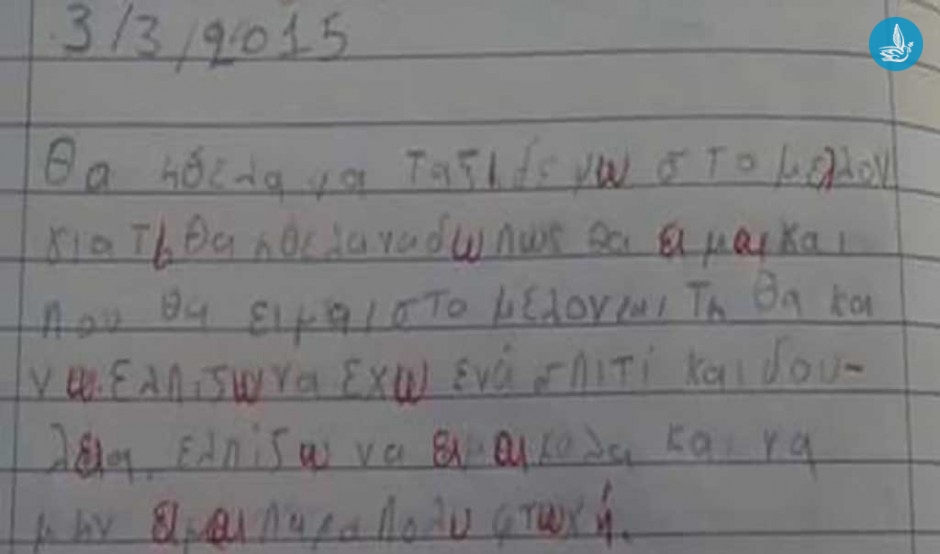 3/3/2015
Θα ηθελα να ταξιδεψω στο μελλον
κιατι θα ηθελα να δω πως θα ειμαι και
που θα ειμαι στο μελον και τη θα κα
νω. Ελπιζω να εχω ενά σπιτί και δου-
λεια. Ελπίζω να ειμαι καλα και να
μην ειμαι παρα πολυ φτωχή.